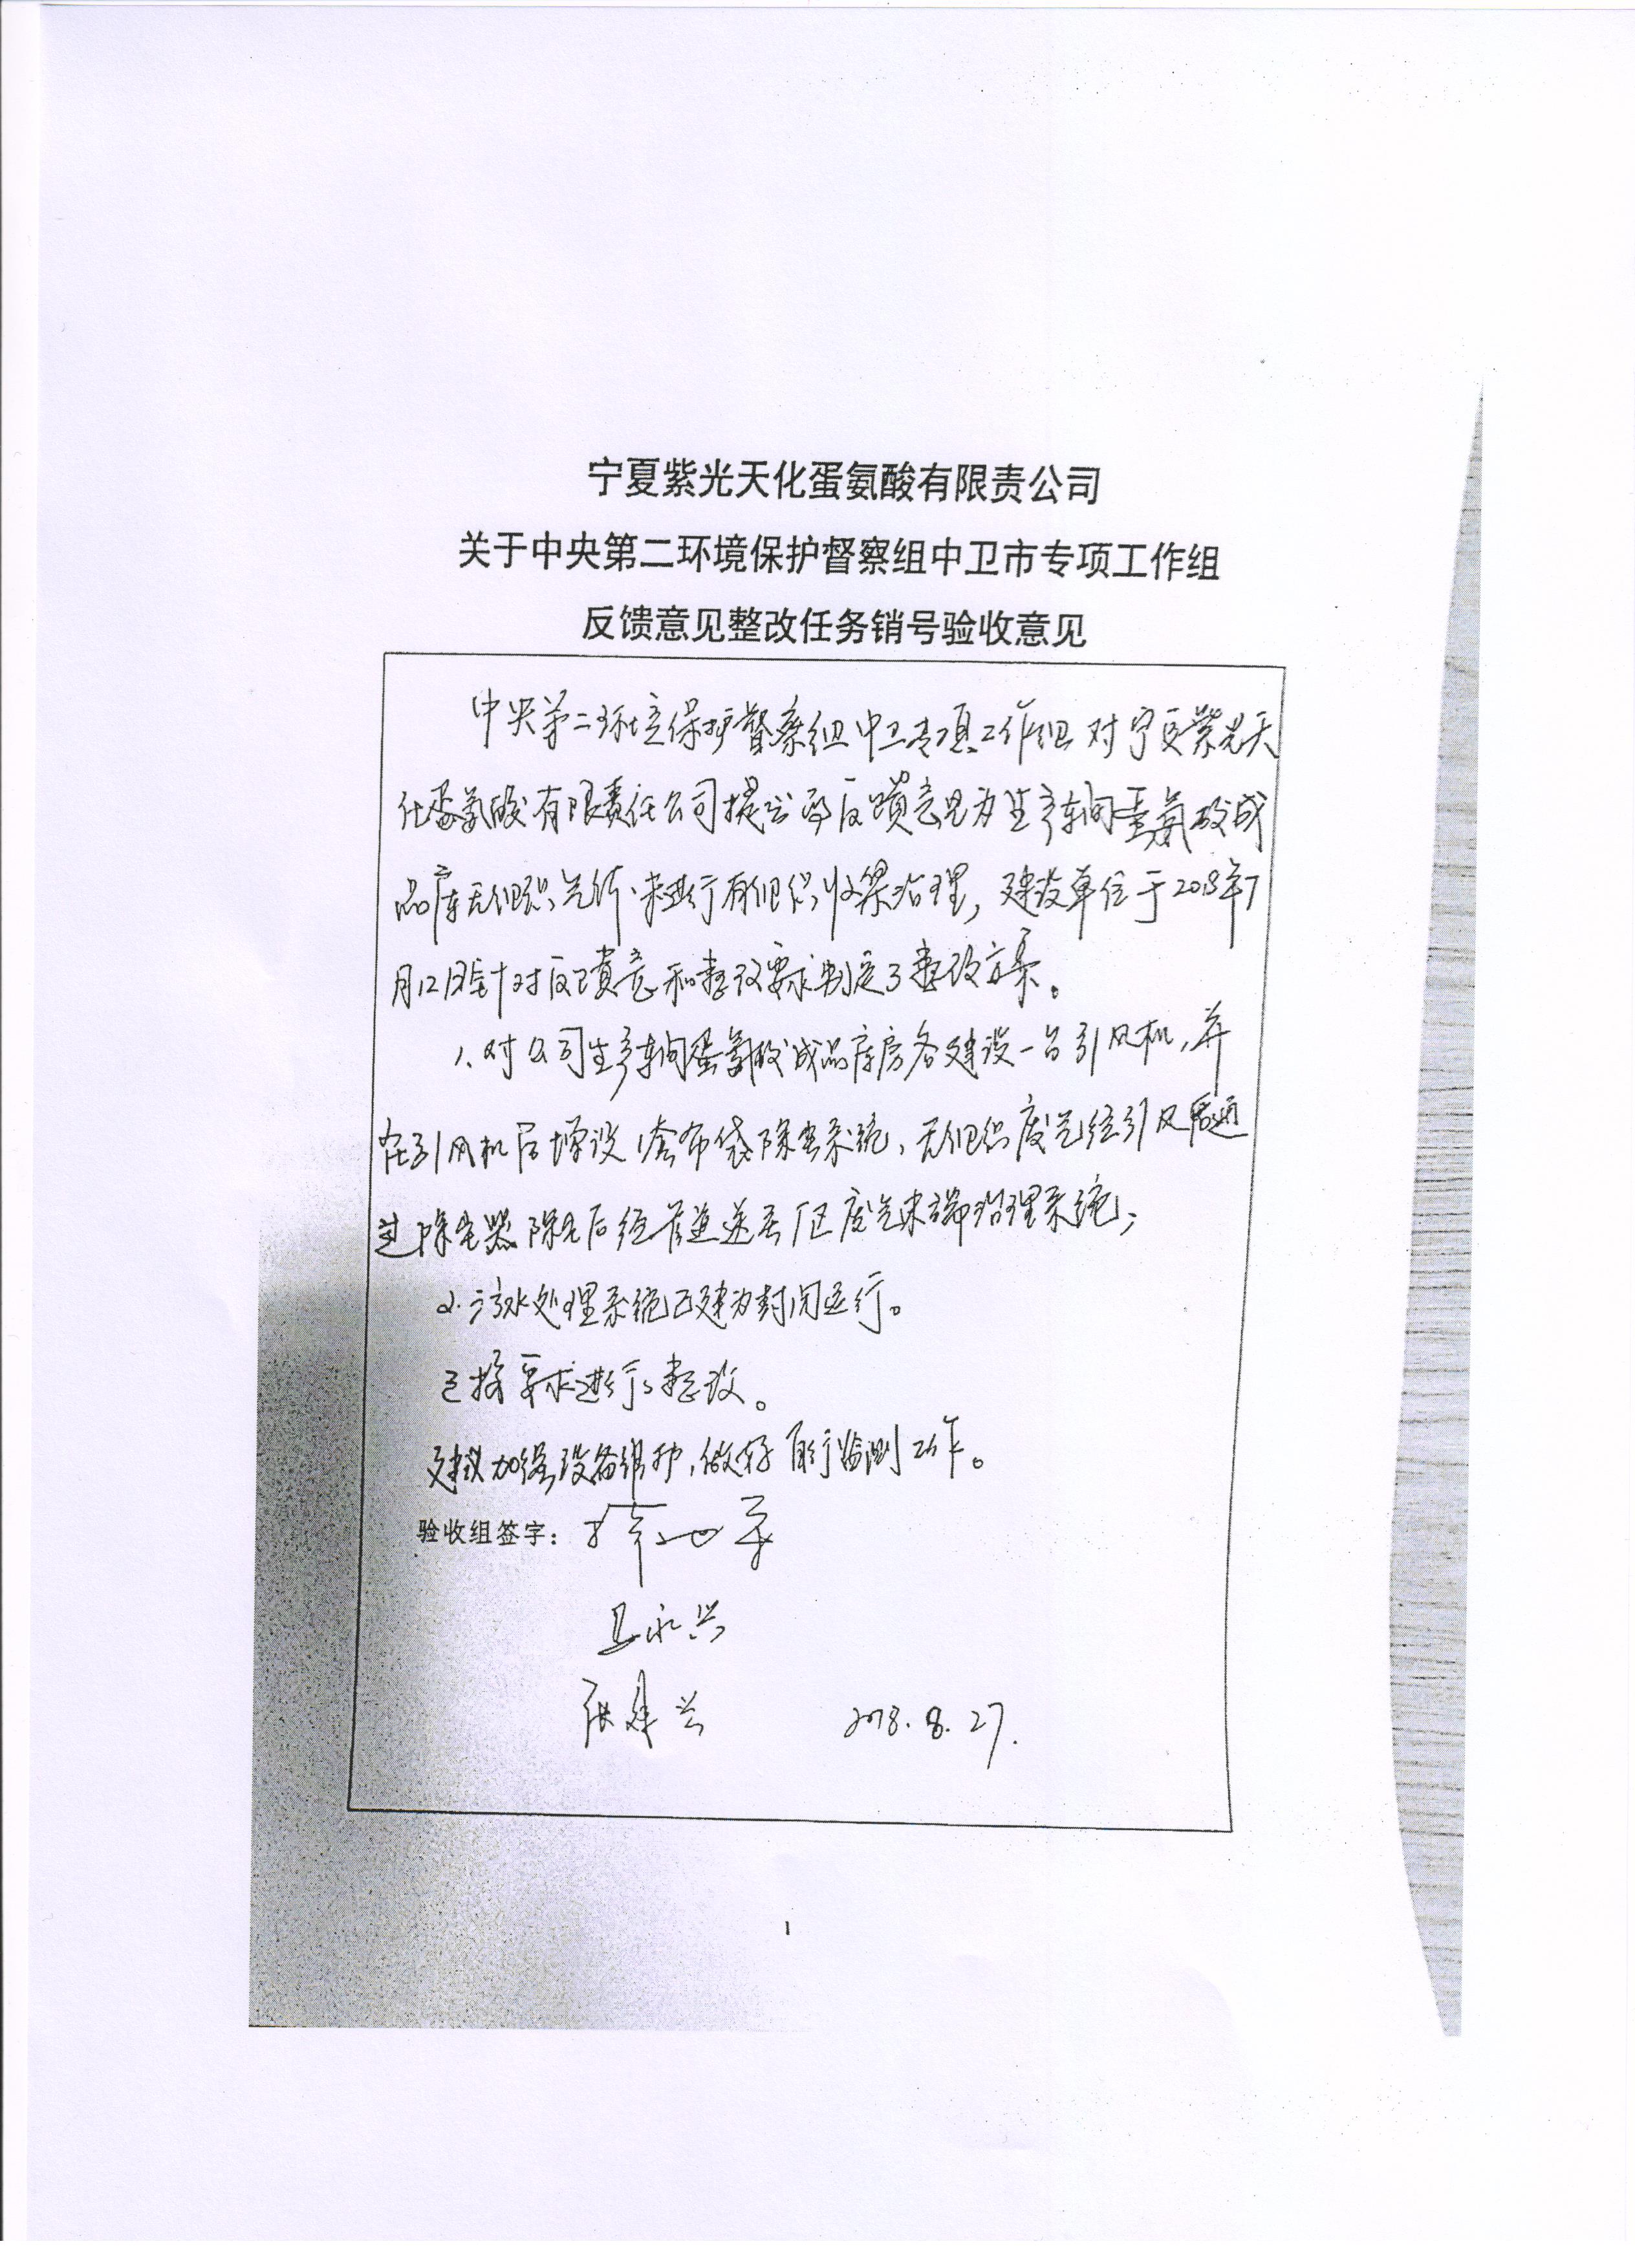 宁夏紫光天化蛋氨酸有限责公司
关于中央第二环境保护督察组中卫市专项工作组
反馈意见整改任务销号验收意见
中央第二环境保护督察组中卫专项工作组对宁夏紫光天
化蛋氨酸有限责任公司提出的反馈意见为生产车间蛋氨酸成
品库无组织，未进行有组织收集治理，建设单位于2018年7
月12日针对反馈意和整改要求制定了整改方案。
1、对公司生产车间蛋氨酸成品库房各建设一台引风机，并
在引风机后增设1套布袋除尘系统，无组织废气经引风后通
过除尘器除尘后经管道送至厂区废气末端治理系统；
2.污水处理系统已建为封闭运行。
已按要求进行了整改。
建议加强设备维护，做好自行监测工作。
验收组签字：
永兴
张建兰 2018.8.27.
1